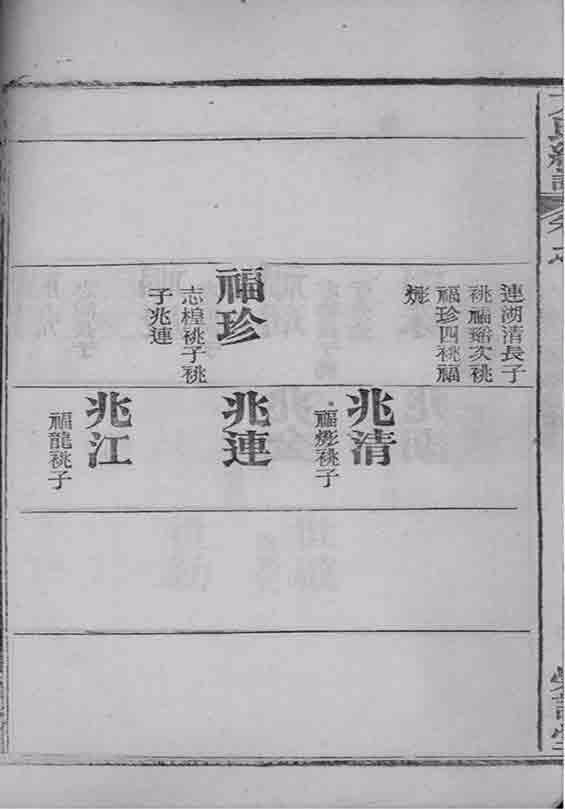 連湖清長子
祧福瑫次祧
福珍四祧福
彣
福珍
志楻祧子祧
子兆連
兆清
福彣祧子
兆連
兆江
福龍祧子